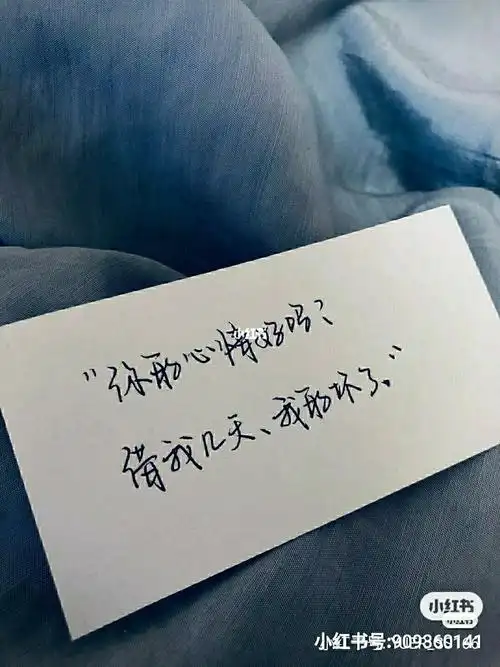 "你的心情好吗?
借我几天、我的坏了。"
小红书
小红书号: